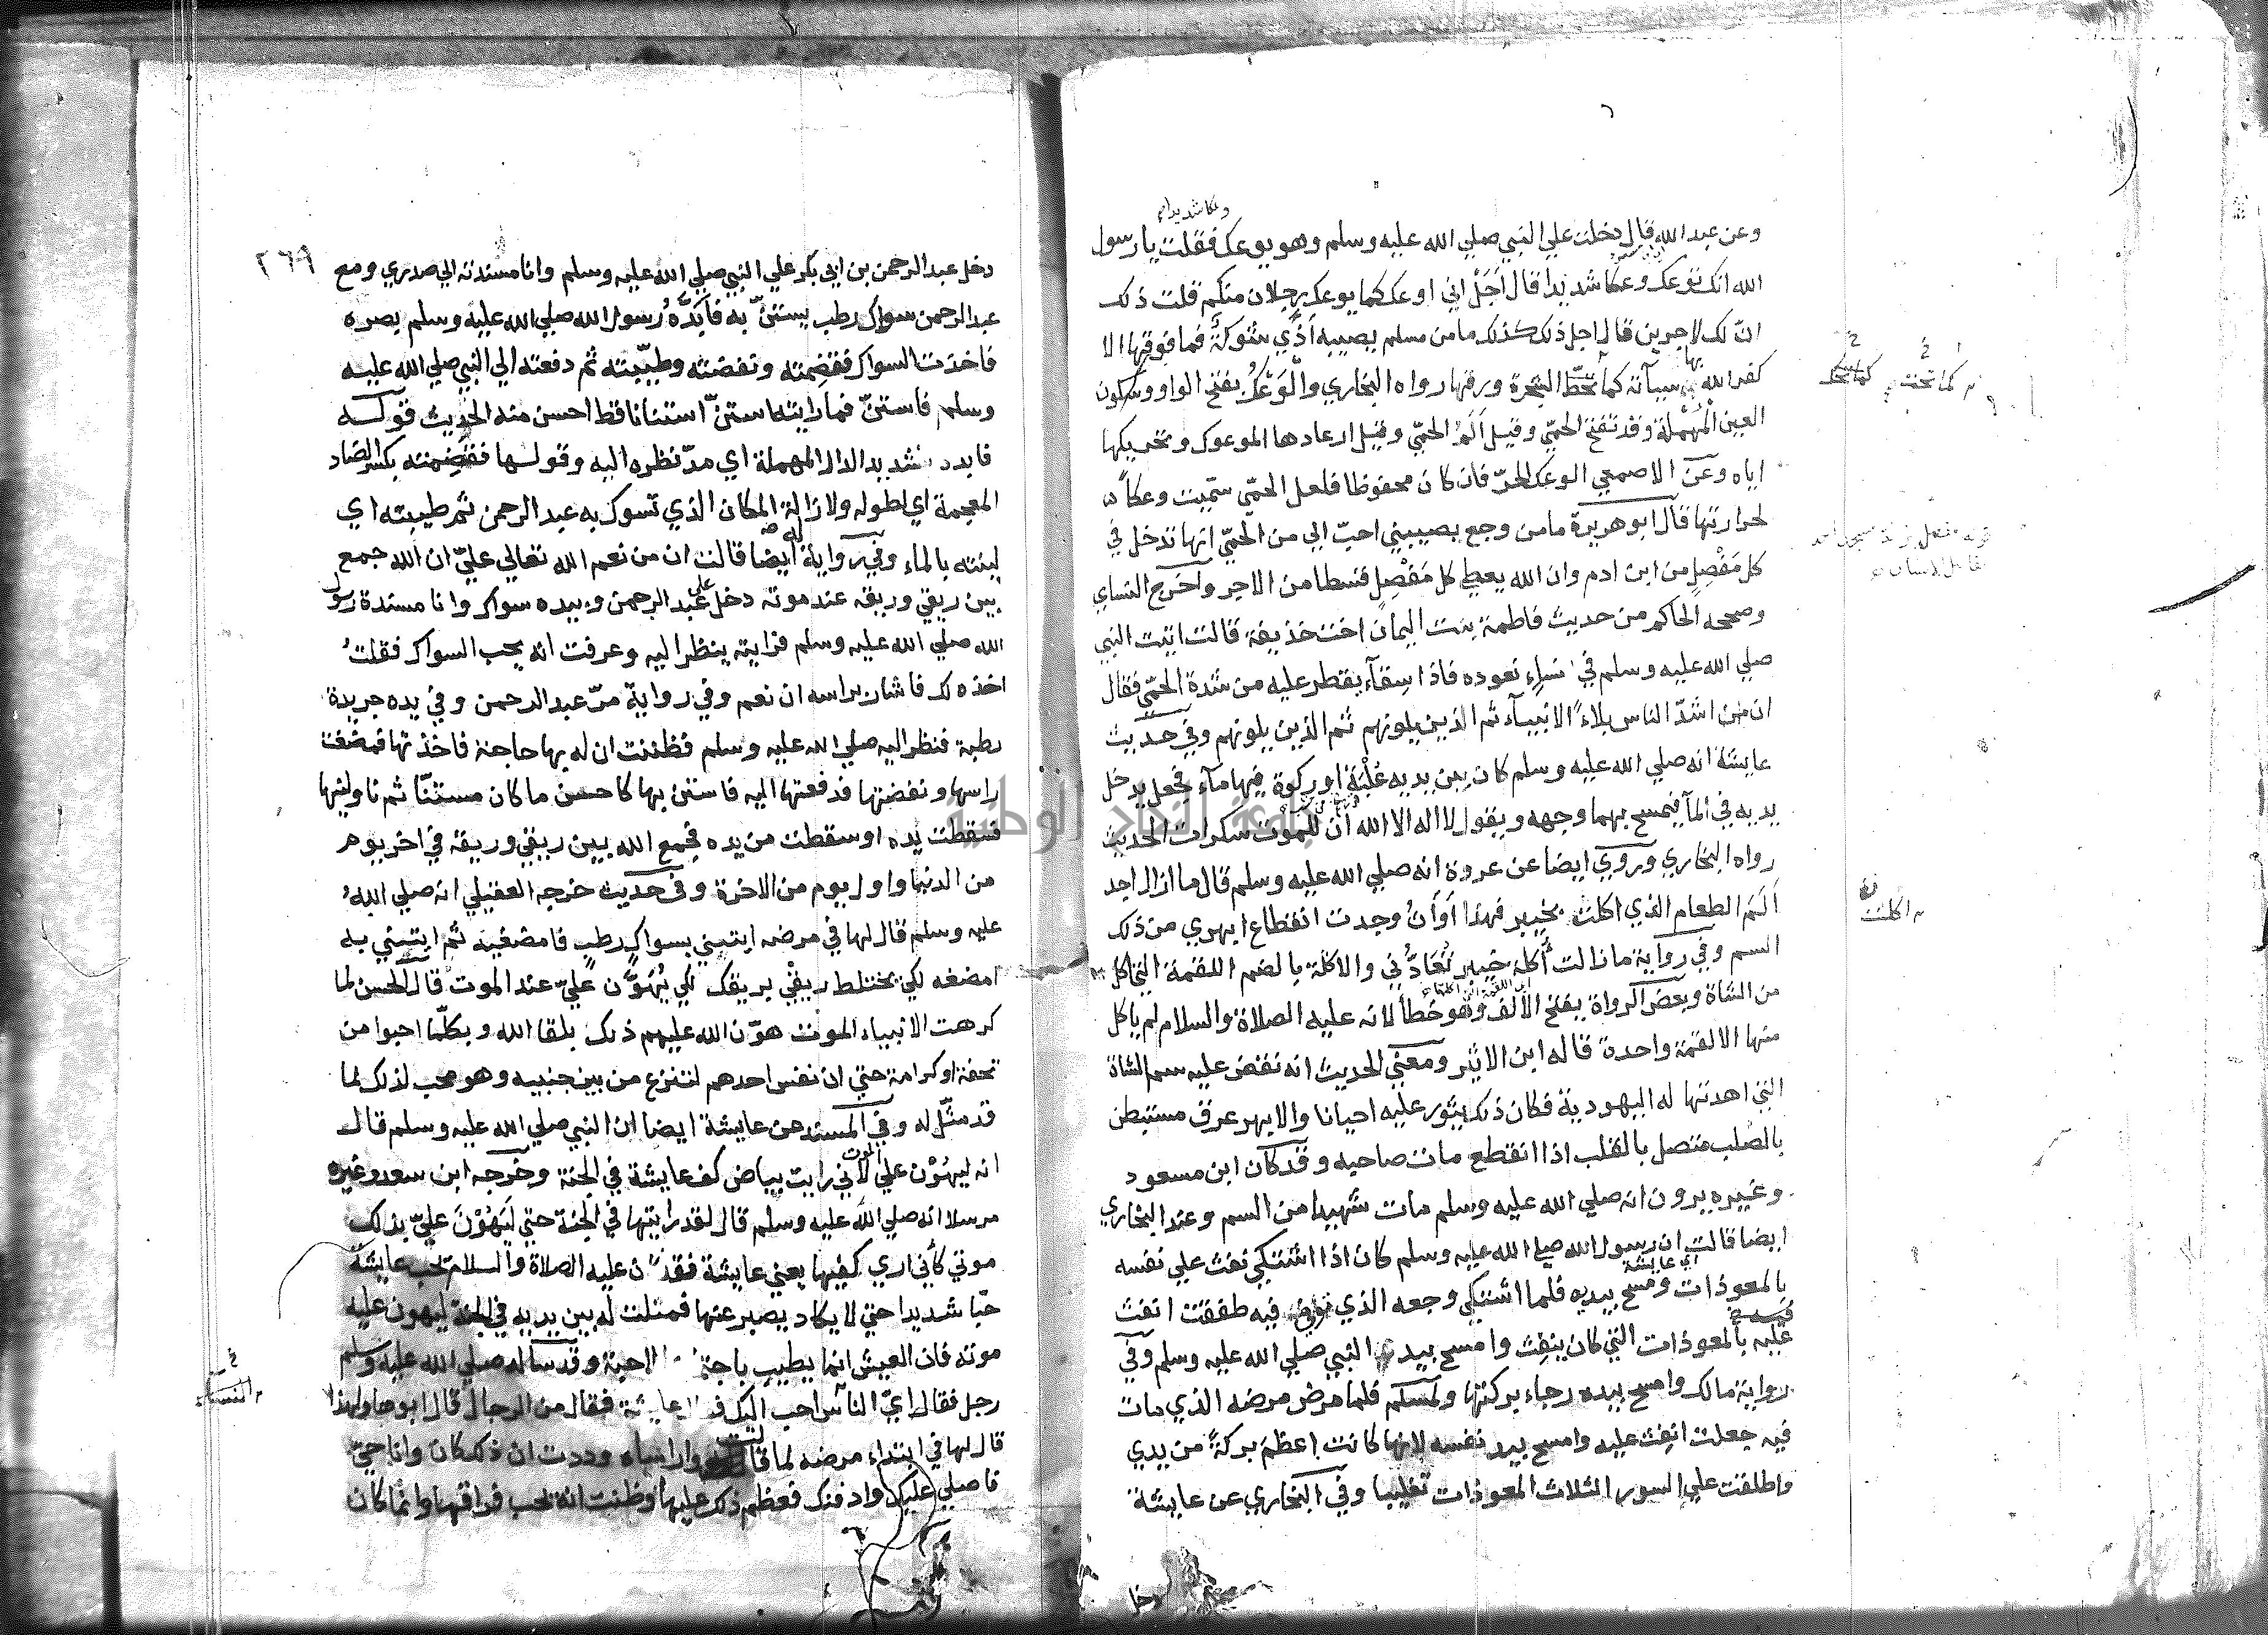 وعكا شديدا
وعن عبد الله قال دخلت علي النبي صلي الله عليه وسلم وهو يوعك فقلت يا رسول
الله انك توعك وعكا شديدا قال اَجَلْ اني اوعك كما يوعك رجلان منكم قلت ذلك
انّ لك لاجرين قال اجل ذلك كذلك ما من مسلم يصيبه اَذًي شوكةٌ فما فوقها الا
كفر الله بها سيآته كما تحطّ الشجرة ورقها رواه البخاري والْوَعْكُ بفتح الواو وسكون
العين الْمُهْملة وقد تفتح الحمّي وقيل اَلَمُ الحمّي وقيل ارعادها الموعوك وتحريكها
اياه وعن الاصمعي الوعك الحرّ فان كان محفوظا فلعل الحمّي سمّيت وعكاً
لحرارتها قال ابو هريرة ما من وجع يصيبني احبّ الي من الحمّي انها تدخل في
كل مَفْصِلٍ من ابن ادم وان الله يعطي كل مَفْصِلٍ قسطا من الاجر واخرج النساي
وصححه الحاكم من حديث فاطمة بنت اليمان اخت حذيفة قالت اتيت النبي
صلي الله عليه وسلم في نساءٍ نعوده فاذا سِقآء يقطر عليه من شدة الحمّي فقال
ان من اشدّ الناس بلاءً الانبيآء ثم الذين يلونهم ثم الذين يلونهم وفي حديث
عايشة انه صلي الله عليه وسلم كان بين يديه عُلْبَة او ركوة فيها مآء فجعل يدخل
يديه في المآ فيمسح بهما وجهه ويقول لا اله الا الله ان للموت سكرات الحديث
رواه البخاري وروي ايضا عن عروة انه صلي الله عليه وسلم قال ما ازال اجد
اَلَمَ الطعام الذي اكلت بخيبر فهذا اَوَانُ وجدت انقطاع ابهري من ذلك
السم وفي رواية ما زالت اُكلة خيبر تُعَادُّني والاكلة بالضم اللقمة التي اكل
من الشاة وبعض الرواة يفتح الالف وهو خطأ لانه عليه الصلاة والسلام لم ياكل
منها الا لقمة واحدة قاله ابن الاثير ومعني الحديث انه نقض عليه سم الشاة
التي اهدتها له اليهودية فكان ذلك يثور عليه احيانا والابهر عرق مستبطن
بالصُّلب متصل بالقلب اذا انقطع مات صاحبه وقد كان ابن مسعود
وغيره يرون انه صلي الله عليه وسلم مات شهيدا من السم وعند البخاري
ايضا قالت ان رسول الله صلي الله عليه وسلم كان اذا اشتكي نفث علي نفسه
اي عايشة
بالمعوذات ومسح بيديه فلما اشتكي وجعه الذي توفي فيه طفقت انفث
عليه بالمعوذات التي كان ينفث وامسح بيد النبي صلي الله عليه وسلم وفي
رواية مالك وامسح بيده رجاء بركتها ولمسلم فلما مرض مرضه الذي مات
فيه جعلت انفث عليه وامسح بيد نفسه لانها كانت اعظم بركةً من يدي
واطلقت علي السور الثلاث المعوذات تغليبا وفي البخاري عن عايشة
دخل
كما تحت
اكلت
٢٦٩
دخل عبد الرحمن بن ابي بكر علي النبي صلي الله عليه وسلم وانا مسندته الي صدري ومع
عبد الرحمن سواك رطب يستنّ به فاَبَدَّهُ رسول الله صلي الله عليه وسلم بصره
فاخذت السواك فقضمته ونفضته وطيّبته ثم دفعته الي النبي صلي الله عليه
وسلم فاستنّ فما رايته استنّ استنانا قط احسن منه الحديث قوله
فابده بتشديد الدال المهملة اي مدّ نظره اليه وقولها فقضِمته بكسر الضاد
المعجمة اي لطوله ولازالة المكان الذي تسوك به عبد الرحمن ثم طيبته اي
لينته بالماء وفي رواية له ايضا قالت ان من نعم الله تعالي عليّ ان الله جمع
بين ريقي وريقه عند موته دخل علي عبد الرحمن وبيده سواك وانا مسندة رسول
الله صلي الله عليه وسلم فرايته ينظر اليه وعرفت انه يحب السواك فقلتُ
اخذه لك فاشار براسه ان نعم وفي رواية مرّ عبد الرحمن وفي يده جريدة
رطبة فنظر اليه صلي الله عليه وسلم فظننت ان له بها حاجة فاخذتها فمضغت
راسها ونفضتها فدفعتها اليه فاستن بها كاحسن ما كان مستنّا ثم ناولنيها
فسقطت يده او سقطت من يده فجمع الله بين ريقي وريقه في اخر يوم
من الدنيا واول يوم من الاخرة وفي حديث خرجه العقيلي انه صلي اللهُ
عليه وسلم قال لها في مرضه ايتيني بسواكٍ رطبٍ فامضغيه ثم ايتيني به
امضغه لكي يختلط ريقْي بريقك لكي يُهَوَّن عليّ عند الموت قال الحسن لما
كرهت الانبياء الموت هوّن الله عليهم ذلك بلقا الله وبكلّما احبوا من
تحفة او كرامة حتي ان نفس احدهم لتنزع من بين جنبيه وهو محب لذلك لما
قد مثّل له وفي المسند عن عايشة ايضا ان النبي صلي الله عليه وسلم قال
انه ليهُوْن علي الموت لاني رايت بياض كف عايشة في الجنة وخرجه ابن سعد وغيره
مرسلا انه صلي الله عليه وسلم قال لقد رايتها في الجنة حتي لَيَهُوْنَ عليّ بذلك
موتي كأني اري كفيها يعني عايشة فقد كان عليه الصلاة والسلام يحب عايشة
حبّا شديدا حتي لا يكاد يصبر عنها فمثلت له بين يديه في الجنة ليهون عليه
موته فان العيش انما يطيب باجتماع الاحبة وقد ساله صلي الله عليه وسلم
رجل فقال ايّ الناس احب اليك فقال عايشة فقال من الرجال قال ابوها ولهذا
قال لها في ابتداء مرضه لما قالت واراساه وددت ان ذلك كان وانا حيّ
فاصلي عليك وادفنك فعظم ذلك عليها وظنت انه يحب فراقها وانما كان
النساء